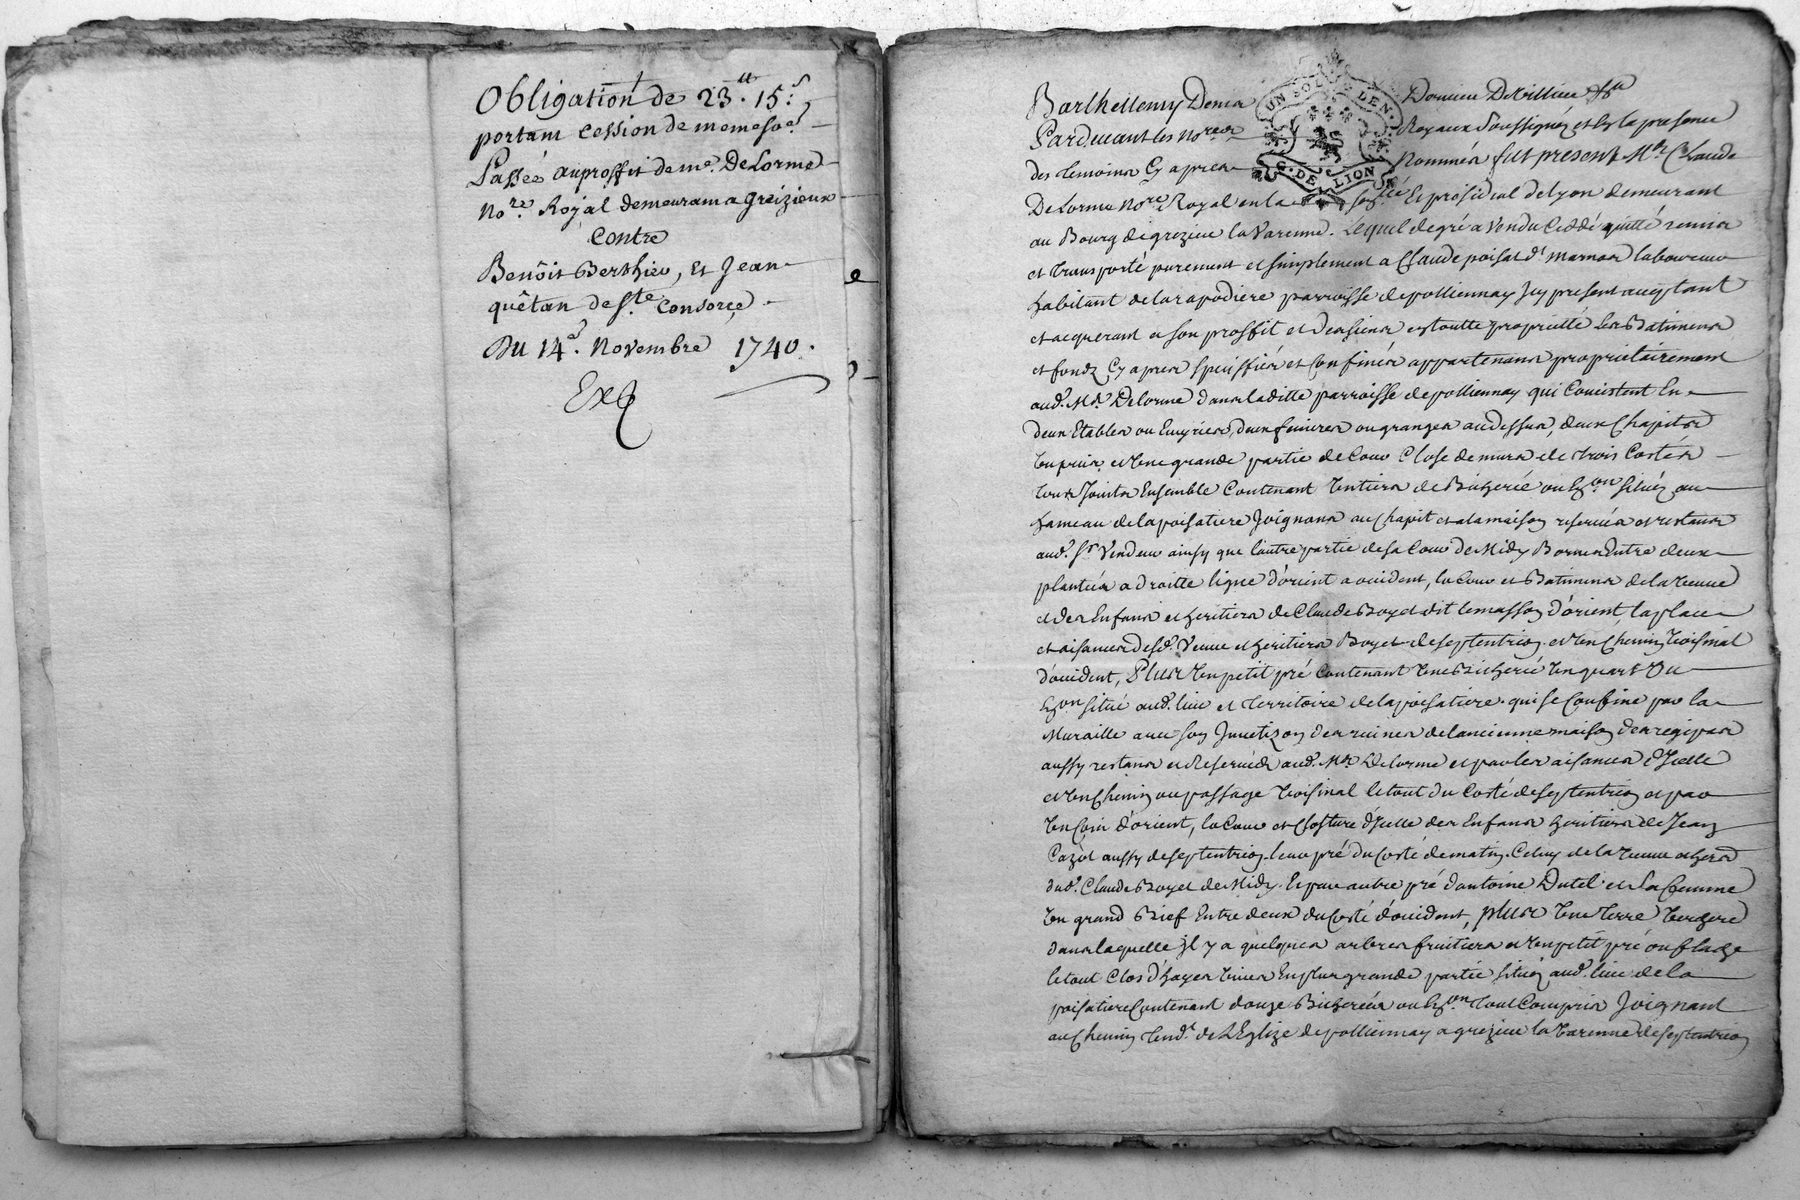 Obligation de 23.tt 15.s
portant cession de meme so.e
Passée au proffit de me. De Lorme
No.re Royal demeurant a Greizieux
Contre
Benôit Berthieu, Et Jean
quêtan de ste Consorce
Du 14.e Novembre 1740.
Exp
Barthellemy Denis Doncieu Devilliers
UN SOL LEN.
G. DE LION
Pardevant les No.res Royaux Soussignés et En la presence
des temoins Cy apres Nommés fut present Me. Claude
De Lorme No.re Royal en la sen.ée Et présidial de Lyon demeurant
au Bourg de grezieu la Varenne. Lequel de gré a Vendu Ceddé quitté remis
et transporté purement et simplement a Claude poisat d.t laboureur
habitant de la rapodiere parroisse de pollionnay Icy present acceptant
et acquerant a son proffit et des siens en toutte proprietté les Batimens
et fondz Cy apres speciffiés et Confinés appartenans proprietairement
aud. Me. Delorme dans laditte parroisse de pollionnay qui Consistent En
deux Etables ou Ecuyries, deux feniéres ou granges au dessus, deux Chapits
Un puis et Une grande partie de Cour Close de murs de trois Costés
tous Joints Ensemble Contenant Un tiers de Bicherée ou En.on Situés au
hameau de la poisatiere Joignans au Chapit et a la maison reservés et restans
aud. Sr Vendeur ainsy que l'autre partie de sa Cour de Midy Bornes Entre deux
plantées a droitte ligne d'orient a occident, la Cour et Batimens de la Veuve
et des Enfans et heritiers de Claude Boyet dit le masson d'orient, la place
et aisances desd. Veuve et heritiers Boyet de septentrion et Un Chemin Voisinal
d'occident, Plus Un petit pré Contenant Une Bicherée Un quart Ou
En.on situé aud. lieu et territoire de la poisatiere. qui se Confine par la
Muraille avec son des ruines de l'ancienne maison
aussy restans et Reservés aud. Me. Delorme et par les aisances d'Icelle
et Un Chemin ou passage Voisinal le tout du Costé de septentrion et par
Un Coin d'orient, la Cour et Closture d'Icelle des Enfans heritiers de Jean
Cazot aussy de septentrion. leur pré du Costé de matin. Celuy de la Veuve et hers
dud. Claude Boyet de Midy. Et par autre pré d'antoine Dutel et Sa femme
Un grand Bief Entre deux du Costé d'occident, plus Une terre Verchere
dans laquelle Il y a quelques arbres fruitiers et Un petit pré
le tout Clos d'hayes Vives En plus grande partie situés aud. lieu de la
poisatiere Contenant douze Bicherées ou En.on tout Compris Joignant
au Chemin tend.t de L'Eglize de pollionnay a grezieu la Varenne de septentrion